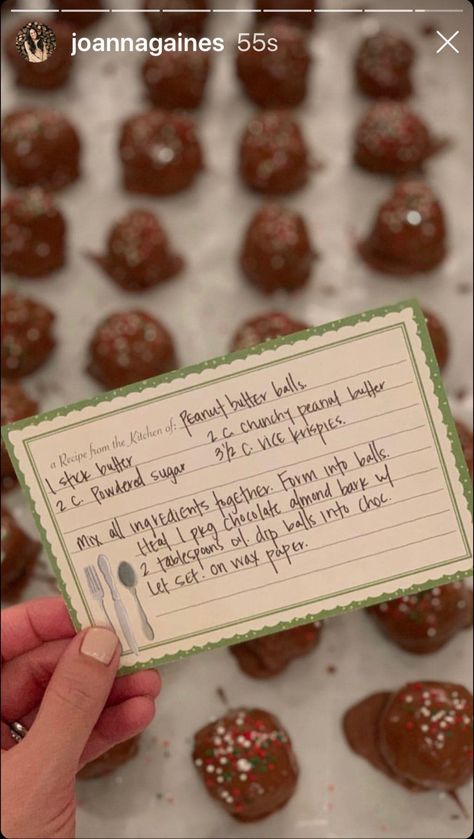 joannagaines 55s
a Recipe from the Kitchen of: Peanut butter balls.
1 stick butter 2 c. chunchy peanut butter
2 c. Powdered sugar 3½ c. rice krispies.
Mix all ingredients together. Form into balls.
Heat 1 pkg chocolate almond bark w/
2 tablespoons oil. drip balls into choc.
Let set. on wax paper.